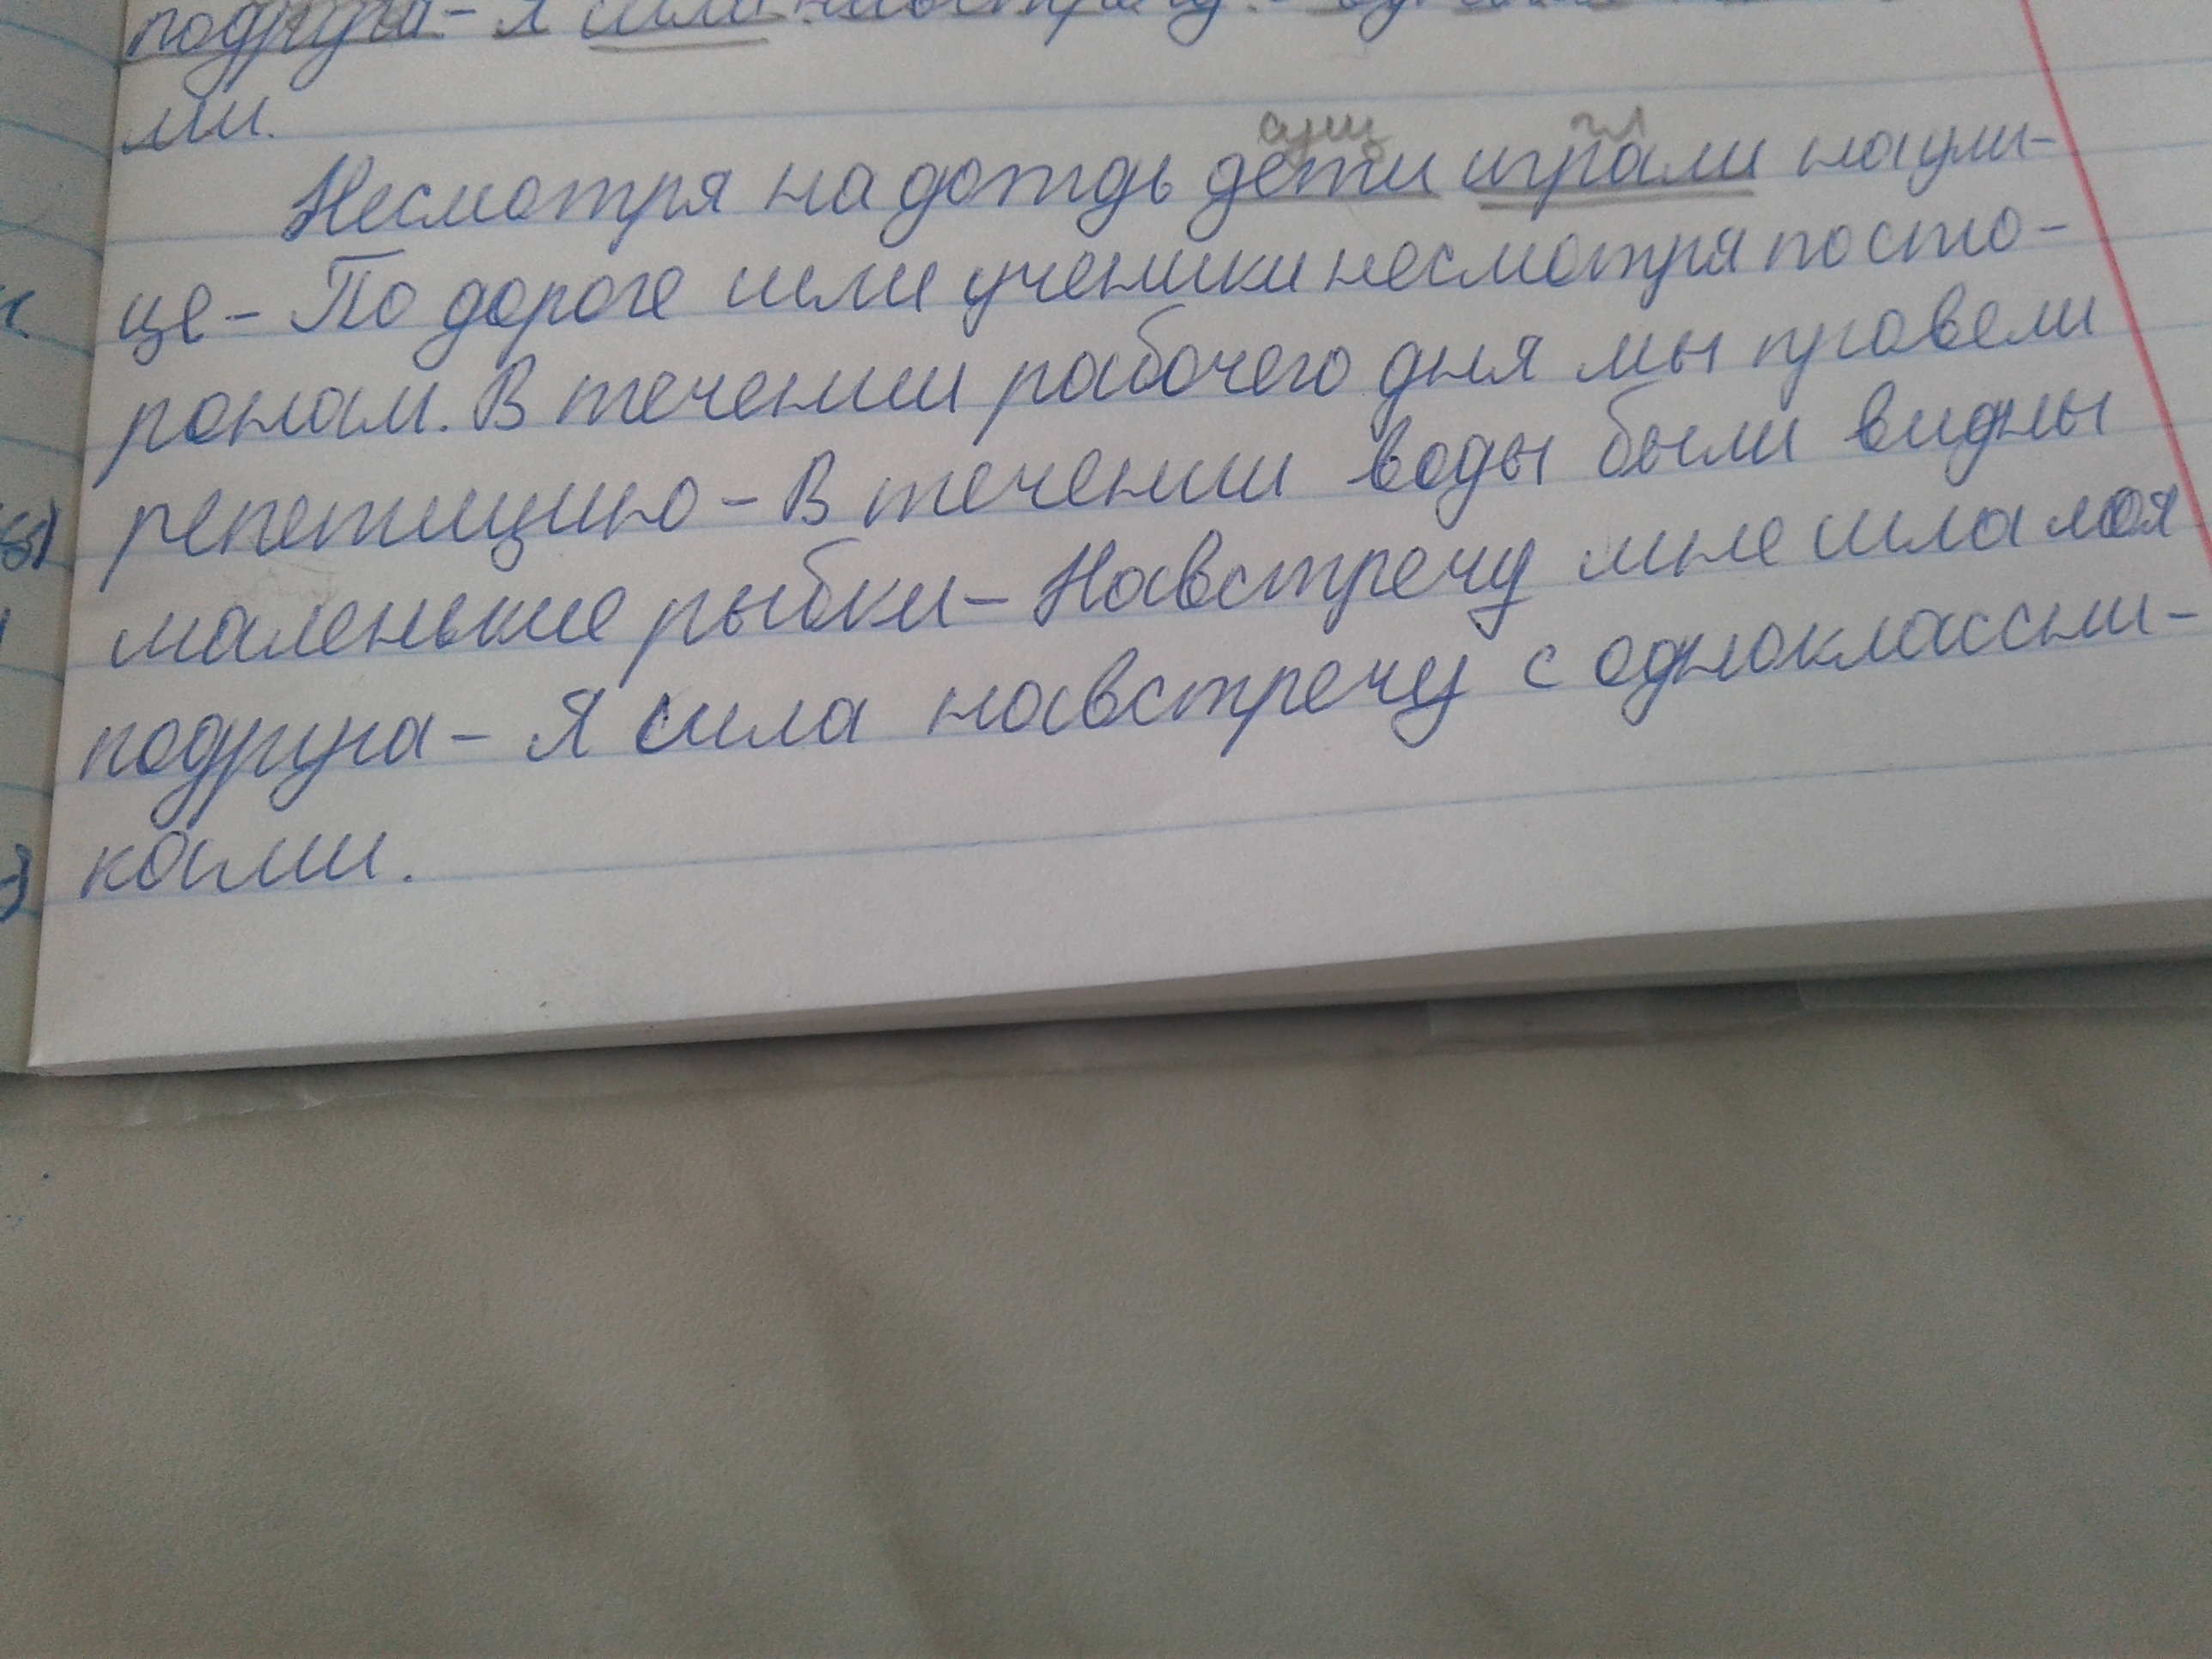 подруга - Я шла навстречу с
ми.
сущ гл
Несмотря на дождь дети играли на ули-
це - По дороге шли ученики несмотря по сто-
ронам. В течении рабочего дня мы провели
репетицию - В течении воды были видны
маленькие рыбки - Навстречу мне шла моя
подруга - Я шла навстречу с одноклассни-
ками.